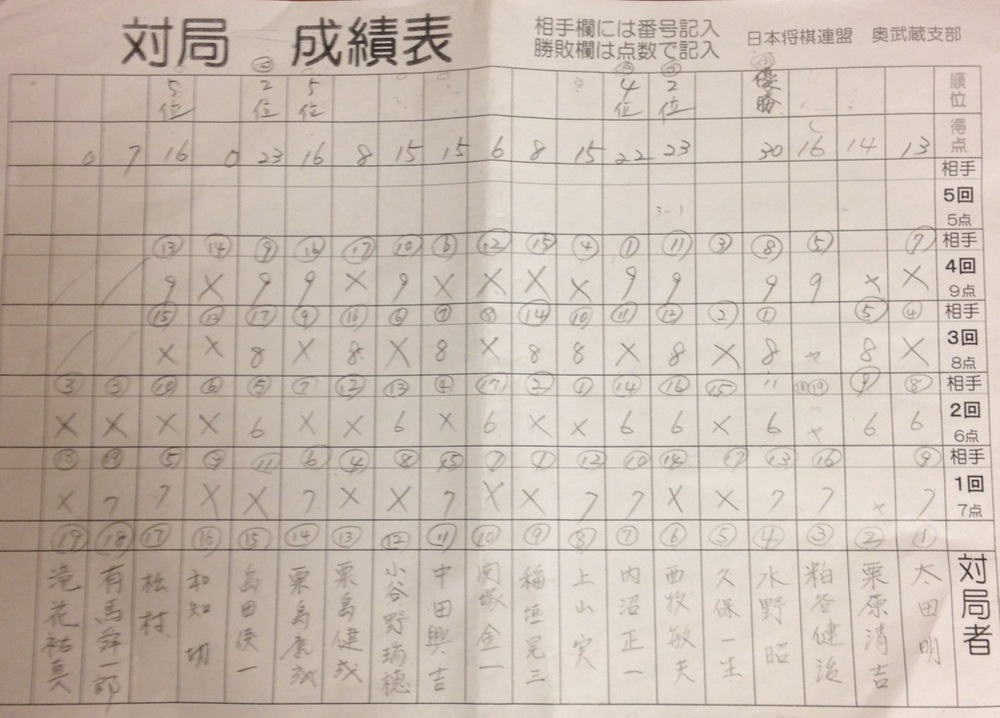 対局 成績表
相手欄には番号記入
勝敗欄は点数で記入
日本将棋連盟 奥武蔵支部
順位 優勝 2位 4位 5位 2位 5位
得点 13 14 16 30 23 22 15 8 6 15 15 8 16 23 0 16 7 0
相手
5回
5点
3-1
相手 ⑦ ⑤ ⑧ ③ ⑪ ① ④ ⑮ ⑫ ⑥ ⑩ ⑰ ⑯ ⑨ ⑭ ⑬
4回 × × 9 9 9 9 × × × × 9 × 9 9 × 9
9点
相手 ④ ⑤ ① ② ⑫ ⑪ ⑩ ⑭ ⑧ ⑦ ⑥ ⑯ ⑨ ⑰ ⑬ ⑮
3回 × 8 × 8 × 8 × 8 8 × 8 × 8 × 8 × ×
8点
相手 ⑧ ⑨ ⑱⑲ 11 ⑮ ⑯ ⑭ ① ② ⑰ ④ ⑬ ⑫ ⑦ ⑤ ⑥ ⑩ ③ ③
2回 6 6 × 6 × 6 6 × × 6 × 6 × × 6 × × × ×
6点
相手 ⑨ ⑯ ⑬ ⑰ ⑭ ⑩ ⑫ ① ⑦ ⑮ ⑧ ④ ⑥ ⑪ ③ ⑤ ⑲ ⑱
1回 7 × 7 7 × × 7 7 × × 7 × × 7 × × 7 7 ×
7点
① ② ③ ④ ⑤ ⑥ ⑦ ⑧ ⑨ ⑩ ⑪ ⑫ ⑬ ⑭ ⑮ ⑯ ⑰ ⑱ ⑲
対局者
太田明
栗原清吉
粕谷健治
水野昭
久保一生
西牧敏夫
内沼正一
上山実
稲垣晃三
関塚金一
中田興吉
小谷野瑞穂
栗島健成
栗島康成
島田俊一
和知切
松村
有馬舜一郎
滝花祐真